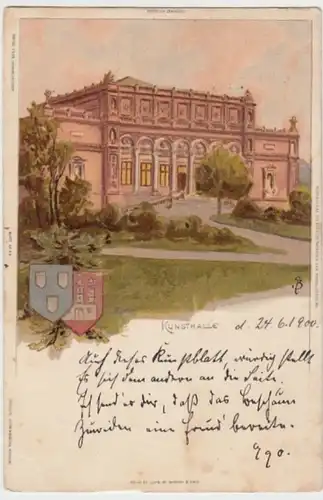 KUNSTHALLE d. 24.6.1900.
Auf dieses Kunstblatt, würdig stellt
Es sich dem andern an die Seite.
Ich send' es dir, daß das Beschau'n
Zuweilen eine Freud' bereite.
Ego.